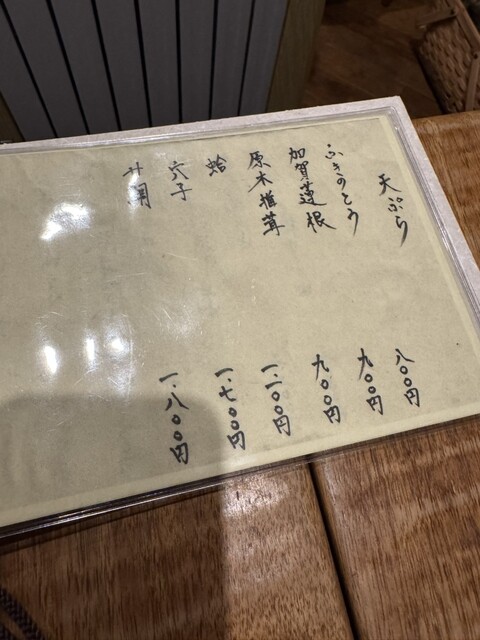 天ぷら
ふきのとう 八〇〇円
加賀蓮根 九〇〇円
原木椎茸 九〇〇円
蛤 一.一〇〇円
穴子 一.七〇〇円
一.八〇〇円